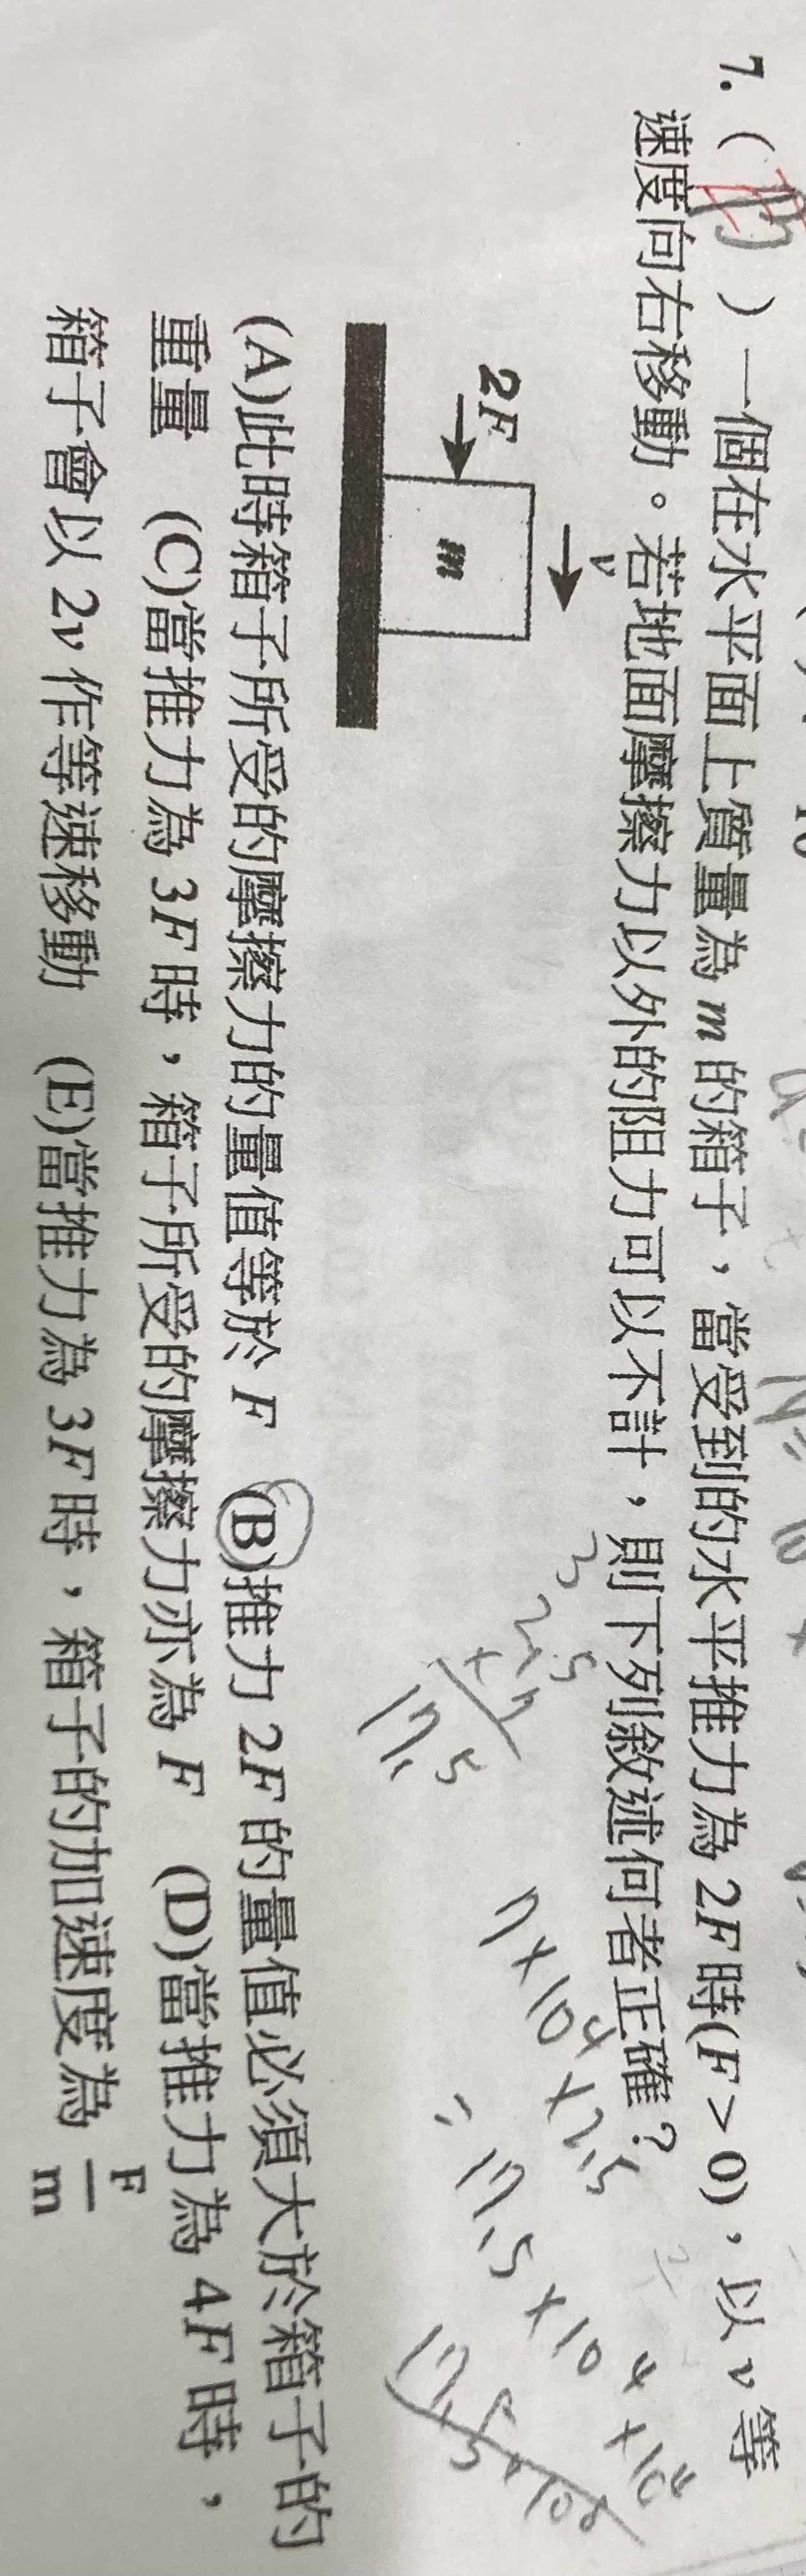 7. ( B ) 一個在水平面上質量為 m 的箱子，當受到的水平推力為 2F 時(F > 0)，以 v 等
速度向右移動。若地面摩擦力以外的阻力可以不計，則下列敘述何者正確？
v
2F
m
3
2.5
× 7
17.5
7×10⁴×2.5
= 17.5×10⁴×10⁴
(A)此時箱子所受的摩擦力的量值等於 F (B)推力 2F 的量值必須大於箱子的
重量 (C)當推力為 3F 時，箱子所受的摩擦力亦為 F (D)當推力為 4F 時，
箱子會以 2v 作等速移動 (E)當推力為 3F 時，箱子的加速度為 F/m